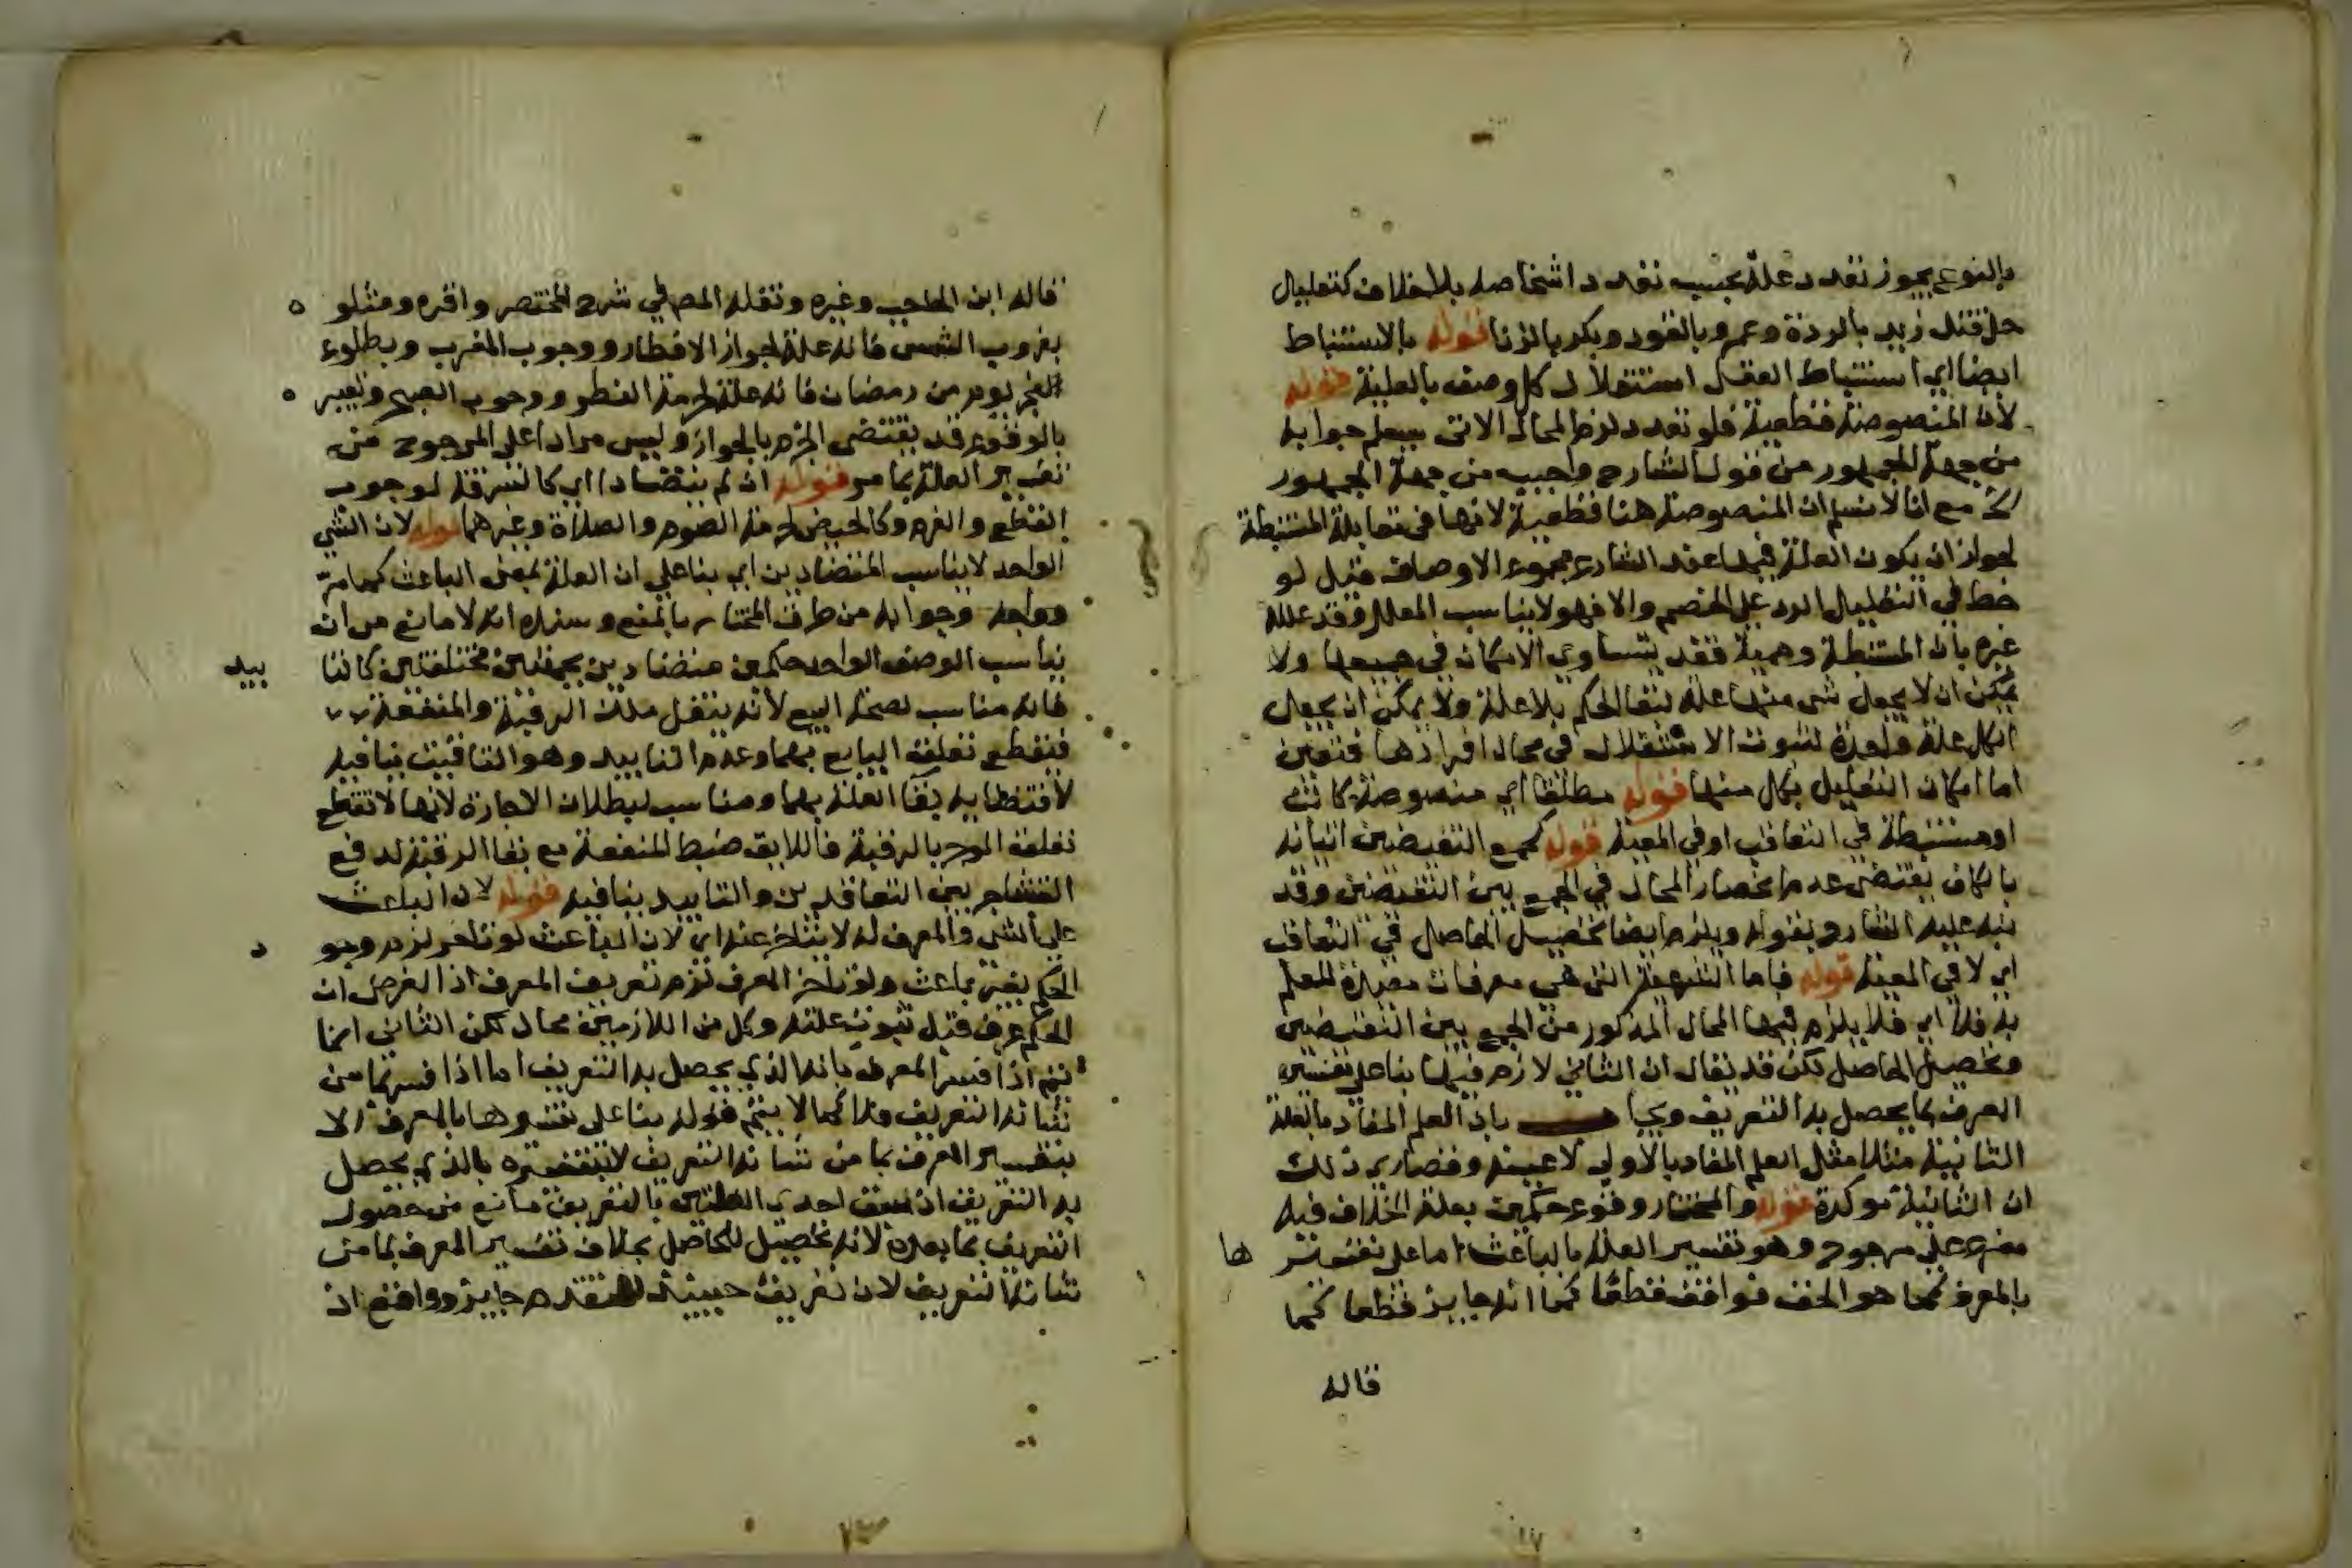 بالنوع يجوز تعدد علته بحسب تعدد اشخاصه بلا خلاف كتعليل
حل قتل زيد بالردة وعمرو بالقود وبكر بالزنا قوله بالاستنباط
ايضا اي استنباط العقل استقلال كل وصف بالعلية قوله
لان المنصوصة قطعية فلو تعدد لزم المحال الاتي سيعلم جوابه
من جهة الجمهور من قول الشارح واجيب من جهة الجمهور
الخ مع انا لا نسلم ان المنصوصة هنا قطعية لانها في مقابلة المستنبطة
لجواز ان يكون العلة فيها عند الشارع مجموع الاوصاف قيل لو
في التعليل الرد على الخصم والا فهو لا يناسب المعلل وقد علله
غيره بان المستنبطة وهمية فقد يتساوي الامكان في جميعها ولا
يمكن ان لا يجعل شي منها علة لبقا الحكم بلا علة ولا يمكن ان يجعل
الكل علة واحدة لثبوت الاستقلال في محال افرادها فتعين
اما امكان التعليل بكل منها قوله مطلقا اي منصوصة كانت
او مستنبطة في التعاقب او في المعية قوله كجمع النقيضين اتيانه
بالكاف يقتضي عدم انحصار المحال في الجمع بين النقيضين وقد
نبه عليه الشارح بقوله ويلزم ايضا تحصيل الحاصل في التعاقب
اي لا في المعية قوله فاما الشرعية التي هي معرفات مفيدة للعلم
به فلا اي فلا يلزم فيها المحال المذكور من الجمع بين النقيضين
وتحصيل الحاصل لكن قد يقال ان الثاني لازم فيها بنا على تفسير
المعرف بما يحصل به التعريف ويجا بان العلم المفاد بالعلة
الثانية مثلا مثل العلم المفاد بالاولى لا عينه وقصارى ذلك
ان الثانية موكدة قوله والمختار وقوع حكمين بعلة الخلاف فيه
مفرع على مرجوح وهو تفسير العلة بالباعث اما على تفسيرها
بالمعرف كما هو الحق فواقف قطعا كما انه جايز قطعا كما
قاله
قاله ابن الحاجب وغيره ونقله المص في شرح المختصر واقره ومثلو
بغروب الشمس فانه علة لجواز الافطار ووجوب المغرب وبطلوع
الفجر يوم من رمضان فانه علة لحرمة الفطر ووجوب الصبح وتعبير
بالوقوع قد يقتضي الجزم بالجواز وليس مرادا على المرجوح من
تفسير العلة بما مر قوله ان لم يتضادا اي كالسرقة لوجوب
القطع والغرم وكالحيض لحرمة الصوم والصلاة وغيرهما قوله لان الشي
الواحد لا يناسب المتضادين اي بنا على ان العلة بمعنى الباعث كما مر
وجوابه من طرف المختار بالمنع وسنده انه لا مانع من ان
يناسب الوصف الواحد حكمين متضادين بجهتين مختلفتين كالتا
بيد
فانه مناسب لصحة البيع لانه ينقل ملك الرقبة والمنفعة
فينقطع تعلقة البايع بهما وعدم التابيد وهو التاقيت ينافيه
لاقتضايه بقا العلقة بهما ومناسب لبطلان الاجارة لانها لا تقطع
تعلقة الموجر بالرقبة فاللايق ضبط المنفعة مع بقا الرقبة لدفع
التشاجر بين التعاقدين والتابيد ينافيه قوله لان الباعث
على الشي والمعرف له لا يتاخر عنه اي لان الباعث لو تاخر لزم وجود
الحكم بغير باعث ولو تاخر المعرف لزم تعريف المعرف اذ الفرض ان
الحكم عرف قبل ثبوت علته وكل من اللازمين محال لكن الثاني انما
يتم اذا فسر المعرف بانه الذي يحصل به التعريف اما اذا فسر بما من
شانه التعريف فلا كما لا يتم قوله بنا على تفسيرها بالمعرف الا
بتفسير المعرف بما من شانه التعريف لا بتفسيره بالذي يحصل
به التعريف اذ سبق احدى العلتين بالتعريف مانع من حصول
التعريف بما بعده لانه تحصيل للحاصل بخلاف تفسير المعرف بما من
شانه التعريف لان تعريف حينئذ للمتقدم جايز وواقع اذ